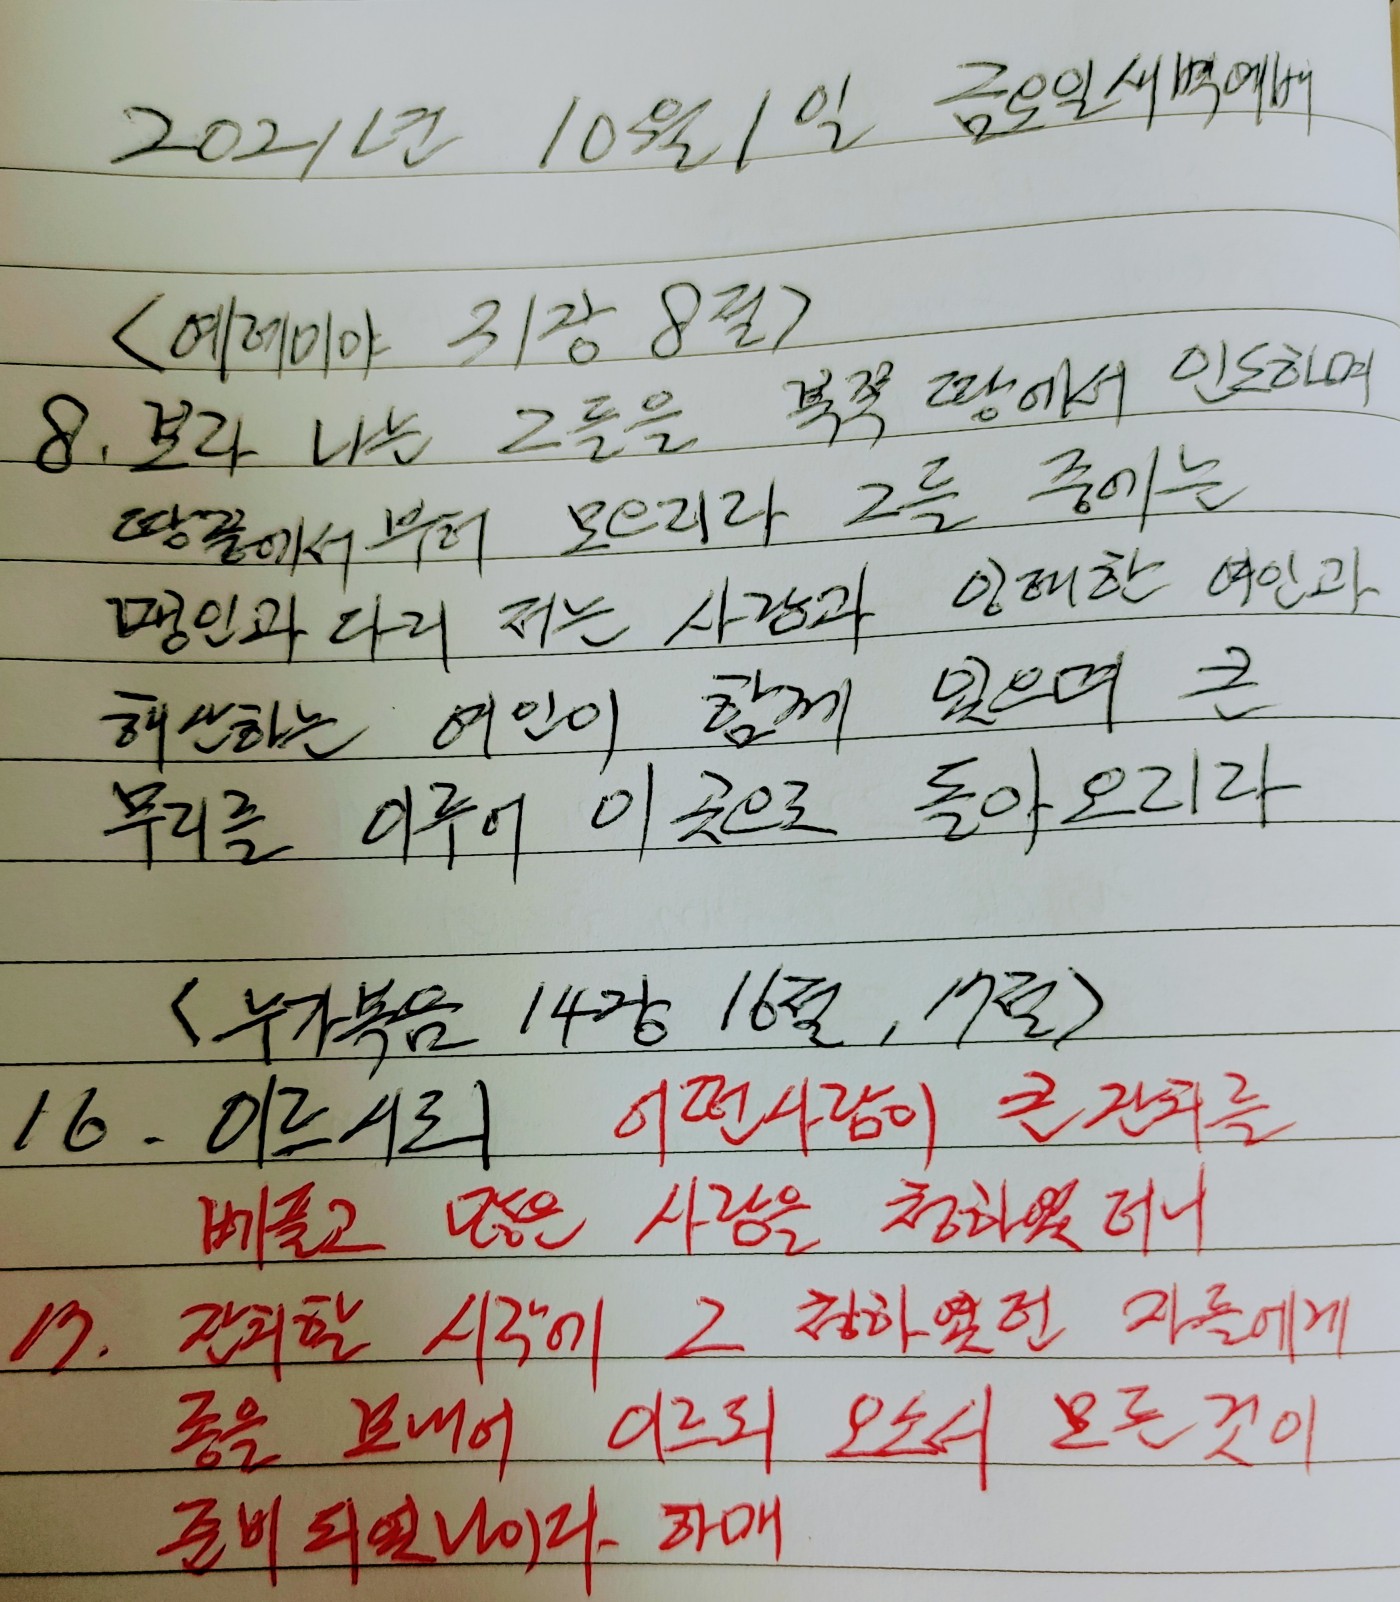 2021년 10월 1일 금요일새벽예배
<예레미야 31장 8절>
8. 보라 나는 그들을 북쪽 땅에서 인도하며
땅끝에서부터 모으리라 그들 중에는
맹인과 다리 저는 사람과 잉태한 여인과
해산하는 여인이 함께 있으며 큰
무리를 이루어 이 곳으로 돌아오리라
<누가복음 14장 16절, 17절>
16. 이르시되 어떤사람이 큰 잔치를
베풀고 많은 사람을 청하였더니
17. 잔치할 시각에 그 청하였던 자들에게
종을 보내어 이르되 오소서 모든 것이
준비되었나이다. 하매